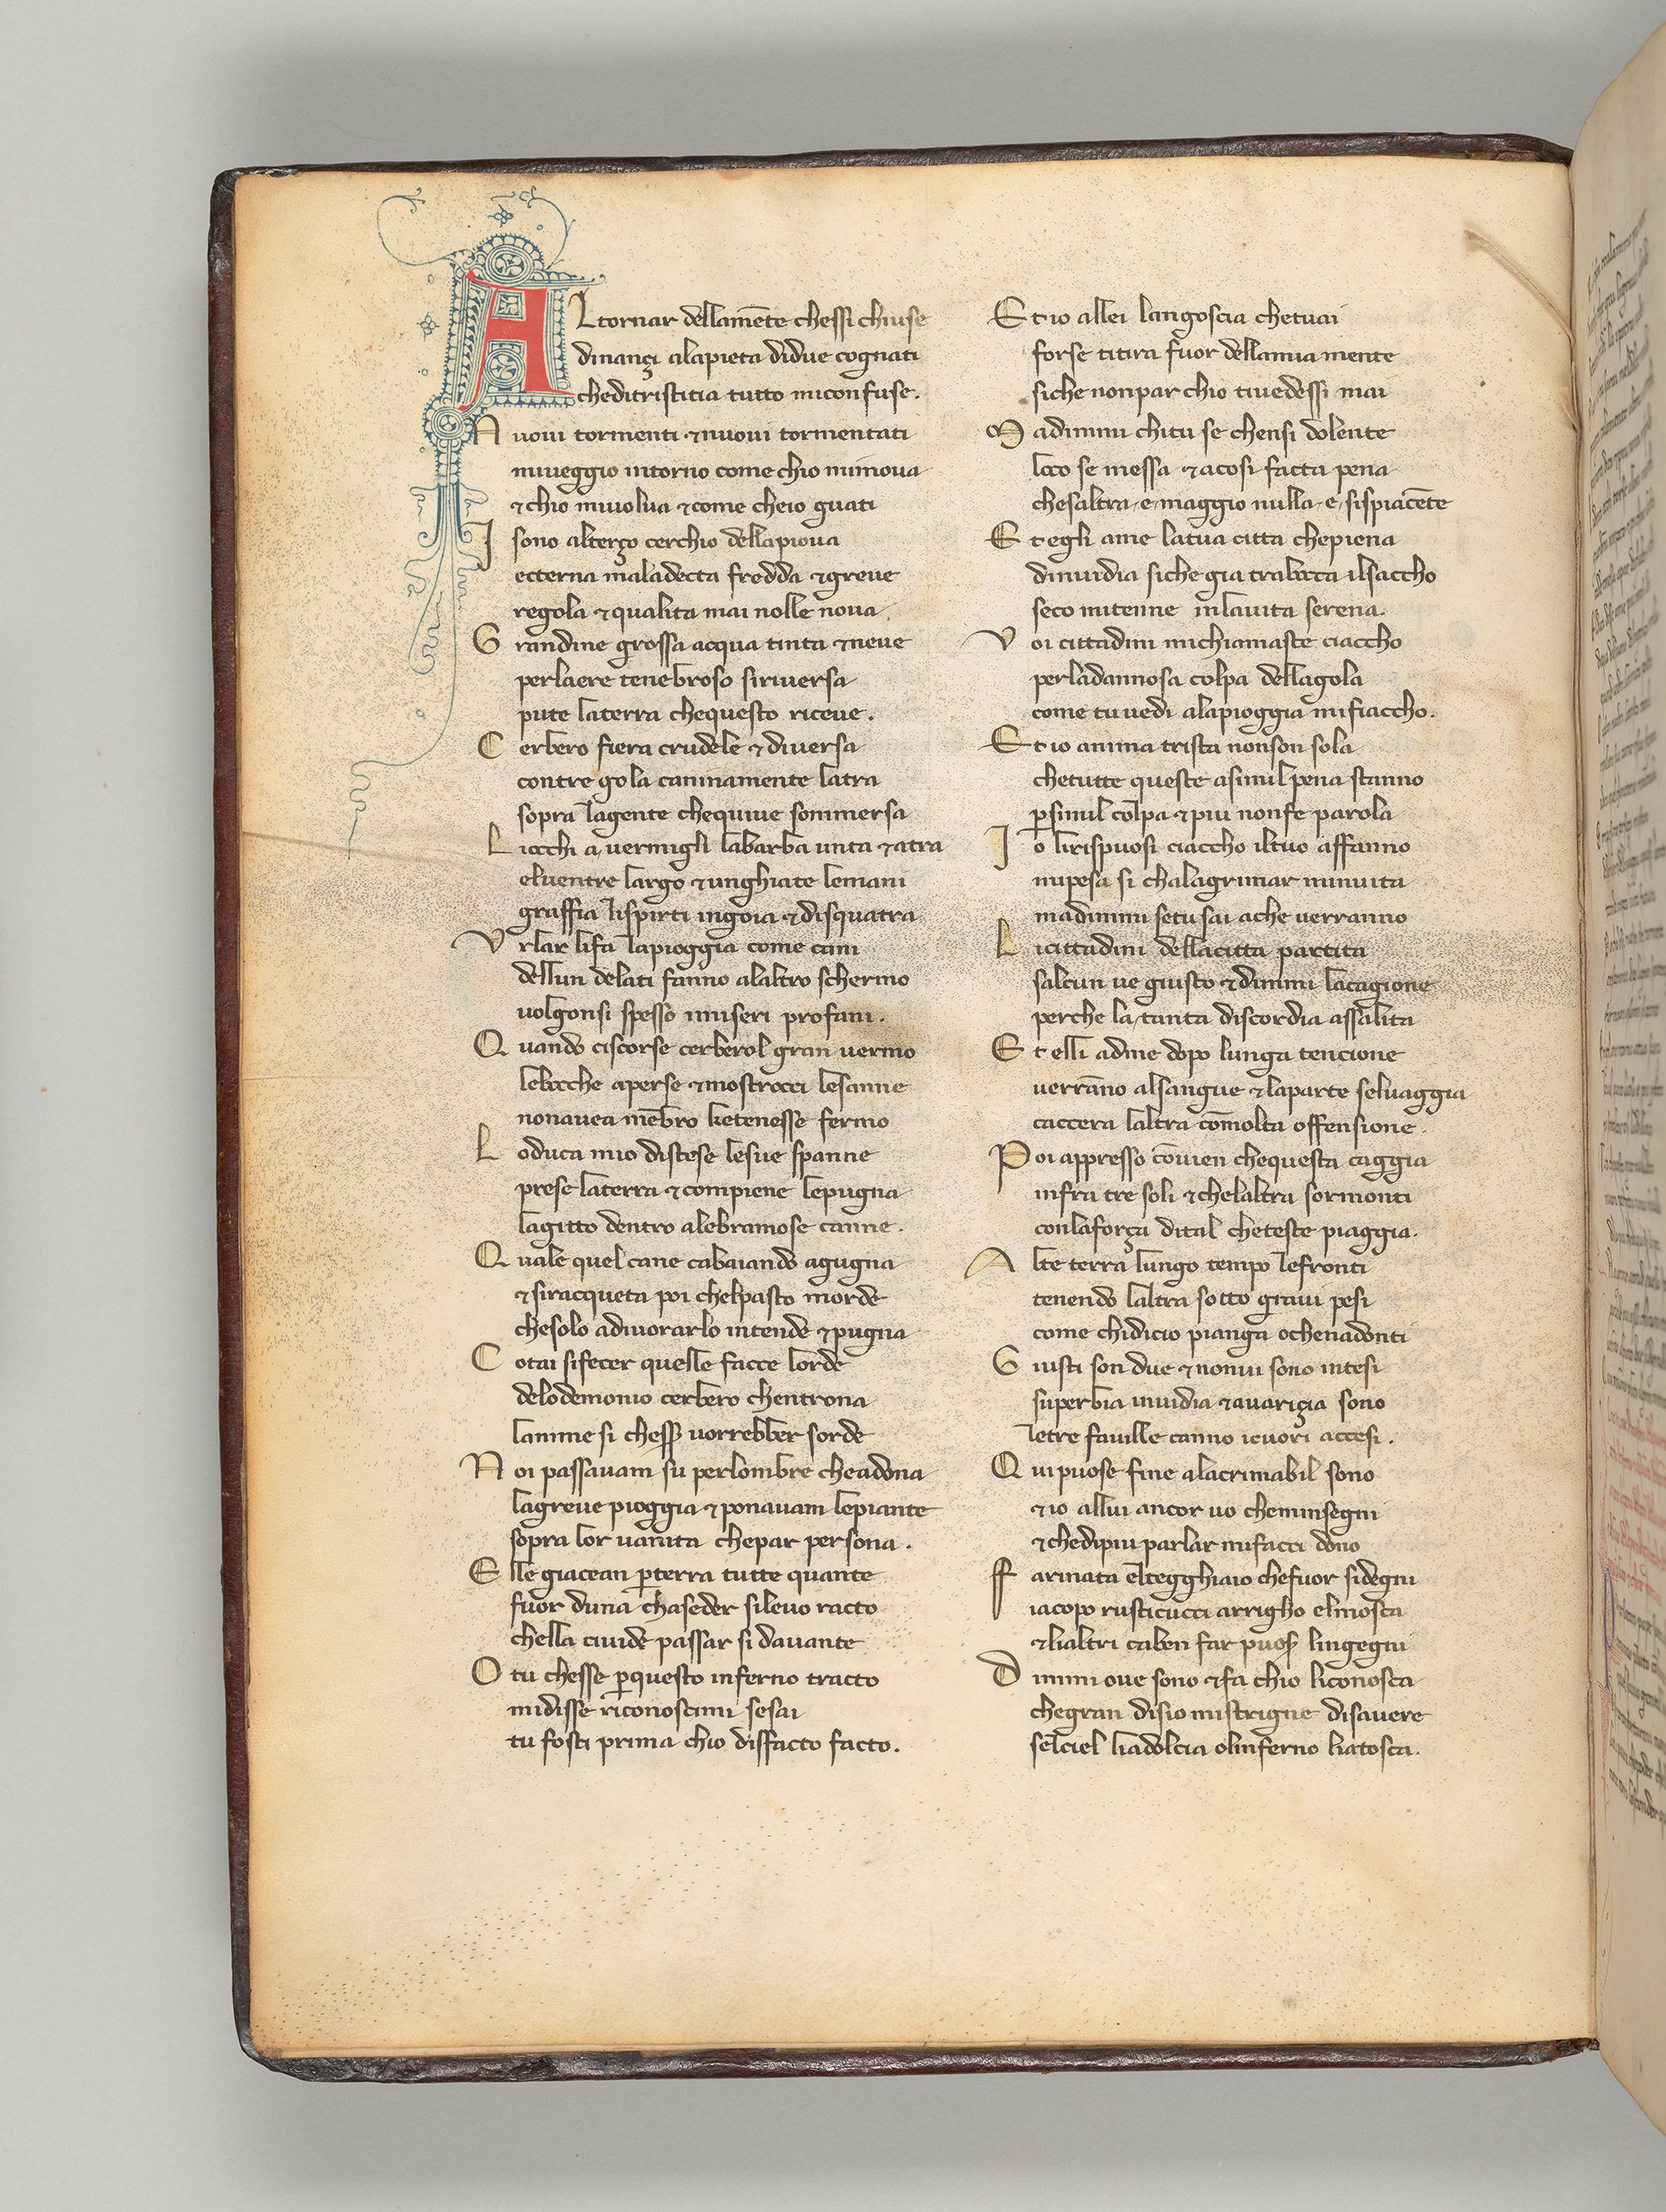 ALtornar dellamēte chessi chiuse
dinançi alapieta didue cognati
cheditristitia tutto miconfuse.
Nuoui tormenti ⁊nuoui tormentati
miueggio intorno come chio mimoua
⁊chio miuolua ⁊come cheio guati
Isono alterço cerchio dellapioua
ecterna maladecta fredda ⁊greue
regola ⁊qualita mai nolle noua
Grandine grossa acqua tinta ⁊neue
perlaere tenebroso siriuersa
pute laterra chequesto riceue.
Cerbero fiera crudele ⁊diuersa
contre gola caninamente latra
sopra lagente chequiue sommersa
Liocchi a uermigli labarba unta ⁊atra
eluentre largo ⁊unghiate lemani
graffia lispirti ingoia ⁊disquatra
Vrlar lifa lapioggia come cani
dellun delati fanno alaltro schermo
uolgonsi spesso imiseri profani.
Quando ciscorse cerberol gran uermo
lebocche aperse ⁊mostrocci lesanne
nonauea mēbro ketenesse fermo
Loduca mio distese lesue spanne
prese laterra ⁊compiene lepugna
lagitto dentro alebramose canne.
Quale quel cane cabaiando agugna
⁊siracqueta poi chelpasto morde
chesolo adiuorarlo intende ⁊pugna
Cotai sifecer quelle facce lorde
delodemonio cerbero chentrona
lanime si chess̄ uorrebber sorde
Noi passauam su perlombre cheadona
lagreue pioggia ⁊ponauam lepiante
sopra lor uanita chepar persona.
Elle giacean ꝑterra tutte quante
fuor duna chaseder sileuo racto
chella ciuide passar si dauante
O tu chesse ꝑquesto inferno tracto
midisse riconoscimi sesai
tu fosti prima chio disfacto facto.
Et io allei langoscia chetuai
forse titira fuor dellamia mente
siche nonpar chio tiuedessi mai
Madimmi chitu se chensi dolente
loco se messa ⁊acosi facta pena
chesaltra e maggio nulla e sispiacēte
Et egli ame latua citta chepiena
dinuidia siche gia trabocca ilsaccho
seco mitenne inlauita serena.
Voi cittadini michiamaste ciaccho
perladannosa colpa dellagola
come tu uedi alapioggia mifiaccho.
Et io anima trista nonson sola
chetutte queste asimil pena stanno
ꝑsimil colpa ⁊piu nonfe parola
Io lirispuosi ciaccho iltuo affanno
mipesa si chalagrimar minuita
madimmi setu sai ache uerranno
Licittadini dellacitta partita
salcun ue giusto ⁊dimmi lacagione
perche la tanta discordia assalita
Et elli adme dopo lunga tencione
uerrāno alsangue ⁊laparte seluaggia
caccera laltra cōmolta offensione.
Poi appresso cōuien chequesta caggia
infra tre soli ⁊chelaltra sormonti
conlaforça dital cheteste piaggia.
Alte terra lungo tempo lefronti
tenendo laltra sotto graui pesi
come chidicio pianga ochenadonti
Giusti son due ⁊nonui sono intesi
superbia inuidia ⁊auariçia sono
letre fauille canno icuori accesi.
Qui puose fine alacrimabil sono
⁊io allui ancor uo cheminsegni
⁊chedipiu parlar mifacci dono
Farinata eltegghiaio chefuor sidegni
iacopo rusticucci arrigho elmosca
⁊lialtri caben far puos̄ lingegni
Dimmi oue sono ⁊fa chio liconosca
chegran disio mistrigne disauere
selciel liadolcia olinferno liatosca.